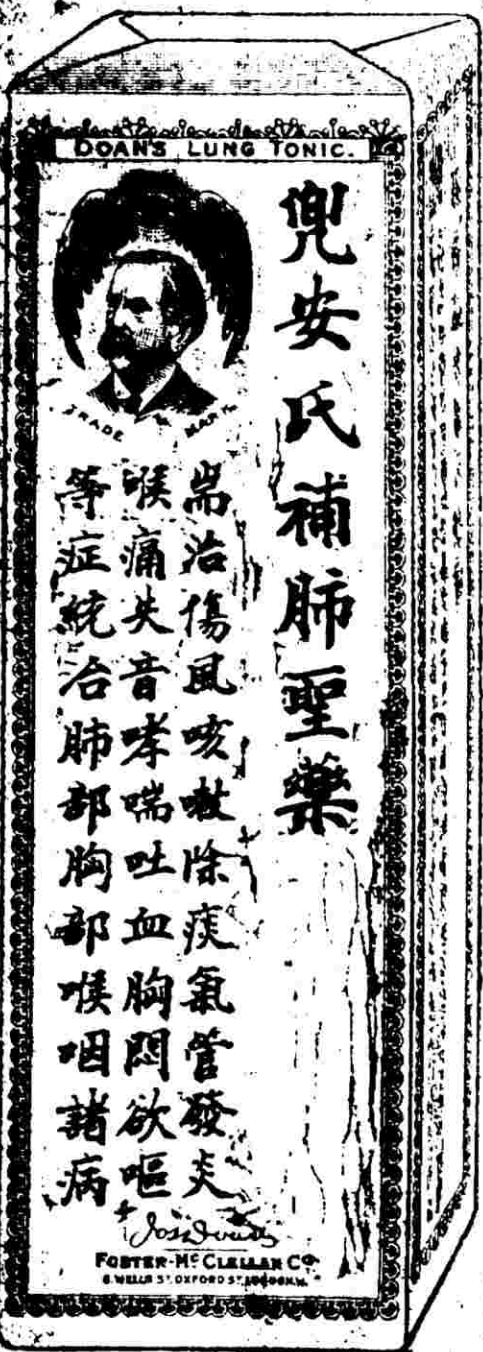 DOAN'S LUNG TONIC.
TRADE MARK
兜安氏補肺聖藥
耑治傷風咳嗽除痰氣管發炎
喉痛失音哮喘吐血胸悶欲嘔
等症統治肺部胸部喉咽諸病
FOSTER-McCLELLAN Co.
8. WELLS ST. OXFORD ST. LONDON.W.